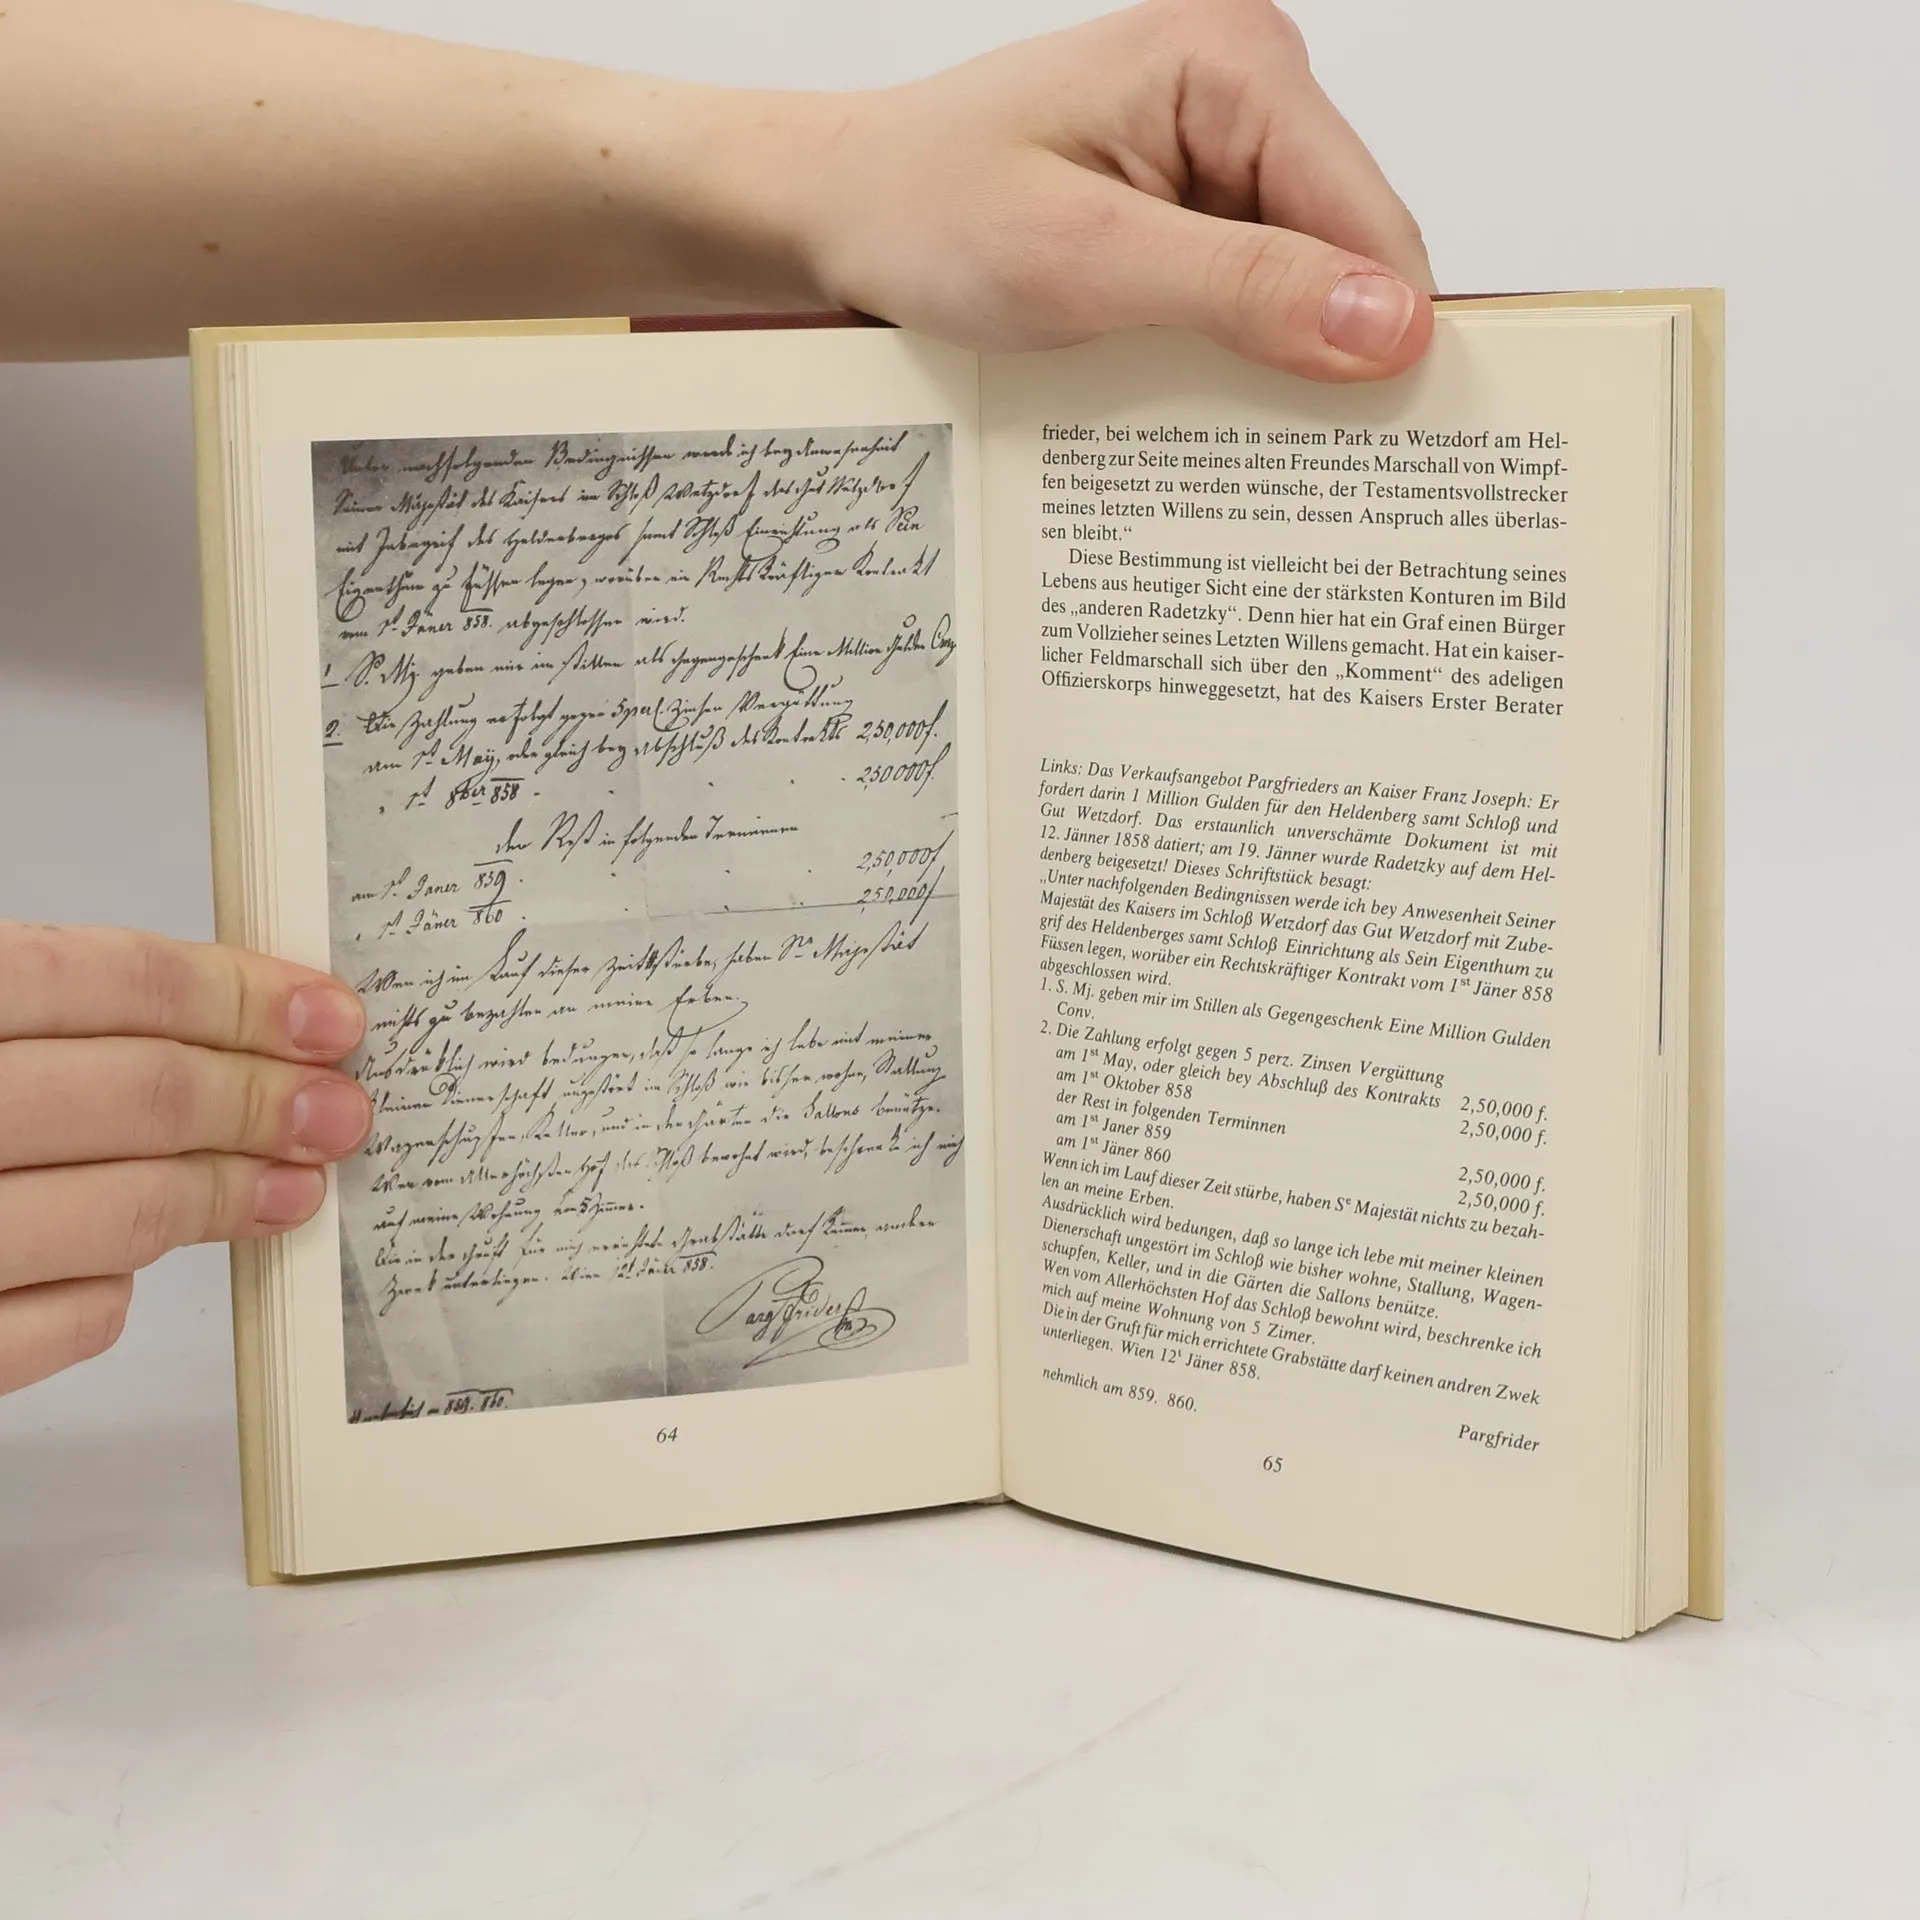 Unter nachfolgenden Bedingnissen werde ich bey Anwesenheit
Seiner Majestät des Kaisers im Schloß Wetzdorf das Gut Wetzdorf
mit Zubegrif des Heldenberges samt Schloß Einrichtung als Sein
Eigenthum zu Füssen legen, worüber ein Rechtskräftiger Kontrakt
vom 1st Jäner 858. abgeschlossen wird.
1 S. Mj. geben mir im stillen als Gegengeschenk Eine Million Gulden Conv
2. Die Zahlung erfolgt gegen 5 perz. Zinsen Vergüttung
am 1st May, oder gleich bey Abschluß des Kontrakts 2,50,000 f.
" 1st 8ber 858 - 2,50,000 f.
der Rest in folgenden Terminnen
am 1st Janer 859 . 2,50,000 f
" 1st Jäner 860 . 2,50,000 f
Wen ich im Lauf dieser Zeit stürbe, haben Se Majestät
nichts zu bezahlen an meine Erben.
Ausdrüklich wird bedungen, daß so lange ich lebe mit meiner
kleinen Dienerschaft ungestört im Schloß wie bisher wohne, Stallung
Wagenschupfen, Keller, und in der Gärten die Sallons benütze.
Wen vom Allerhöchsten Hof das Schloß bewohnt wird, beschrenke ich mich
auf meine Wohnung von 5 Zimer.
Die in der Gruft für mich errichtete Grabstätte darf keinen andern
Zwek unterliegen. Wien 12t Jäner 858.
Pargfrider
859. 860.
64
frieder, bei welchem ich in seinem Park zu Wetzdorf am Hel-
denberg zur Seite meines alten Freundes Marschall von Wimpf-
fen beigesetzt zu werden wünsche, der Testamentsvollstrecker
meines letzten Willens zu sein, dessen Anspruch alles überlas-
sen bleibt.“
Diese Bestimmung ist vielleicht bei der Betrachtung seines
Lebens aus heutiger Sicht eine der stärksten Konturen im Bild
des „anderen Radetzky“. Denn hier hat ein Graf einen Bürger
zum Vollzieher seines Letzten Willens gemacht. Hat ein kaiser-
licher Feldmarschall sich über den „Komment“ des adeligen
Offizierskorps hinweggesetzt, hat des Kaisers Erster Berater
Links: Das Verkaufsangebot Pargfrieders an Kaiser Franz Joseph: Er
fordert darin 1 Million Gulden für den Heldenberg samt Schloß und
Gut Wetzdorf. Das erstaunlich unverschämte Dokument ist mit
12. Jänner 1858 datiert; am 19. Jänner wurde Radetzky auf dem Hel-
denberg beigesetzt! Dieses Schriftstück besagt:
„Unter nachfolgenden Bedingnissen werde ich bey Anwesenheit Seiner
Majestät des Kaisers im Schloß Wetzdorf das Gut Wetzdorf mit Zube-
grif des Heldenberges samt Schloß Einrichtung als Sein Eigenthum zu
Füssen legen, worüber ein Rechtskräftiger Kontrakt vom 1st Jäner 858
abgeschlossen wird.
1. S. Mj. geben mir im Stillen als Gegengeschenk Eine Million Gulden
Conv.
2. Die Zahlung erfolgt gegen 5 perz. Zinsen Vergüttung
am 1st May, oder gleich bey Abschluß des Kontrakts 2,50,000 f.
am 1st Oktober 858 2,50,000 f.
der Rest in folgenden Terminnen
am 1st Janer 859 2,50,000 f.
am 1st Jäner 860 2,50,000 f.
Wenn ich im Lauf dieser Zeit stürbe, haben Se Majestät nichts zu bezah-
len an meine Erben.
Ausdrücklich wird bedungen, daß so lange ich lebe mit meiner kleinen
Dienerschaft ungestört im Schloß wie bisher wohne, Stallung, Wagen-
schupfen, Keller, und in die Gärten die Sallons benütze.
Wen vom Allerhöchsten Hof das Schloß bewohnt wird, beschrenke ich
mich auf meine Wohnung von 5 Zimer.
Die in der Gruft für mich errichtete Grabstätte darf keinen andren Zwek
unterliegen. Wien 12t Jäner 858.
nehmlich am 859. 860.
Pargfrider
65